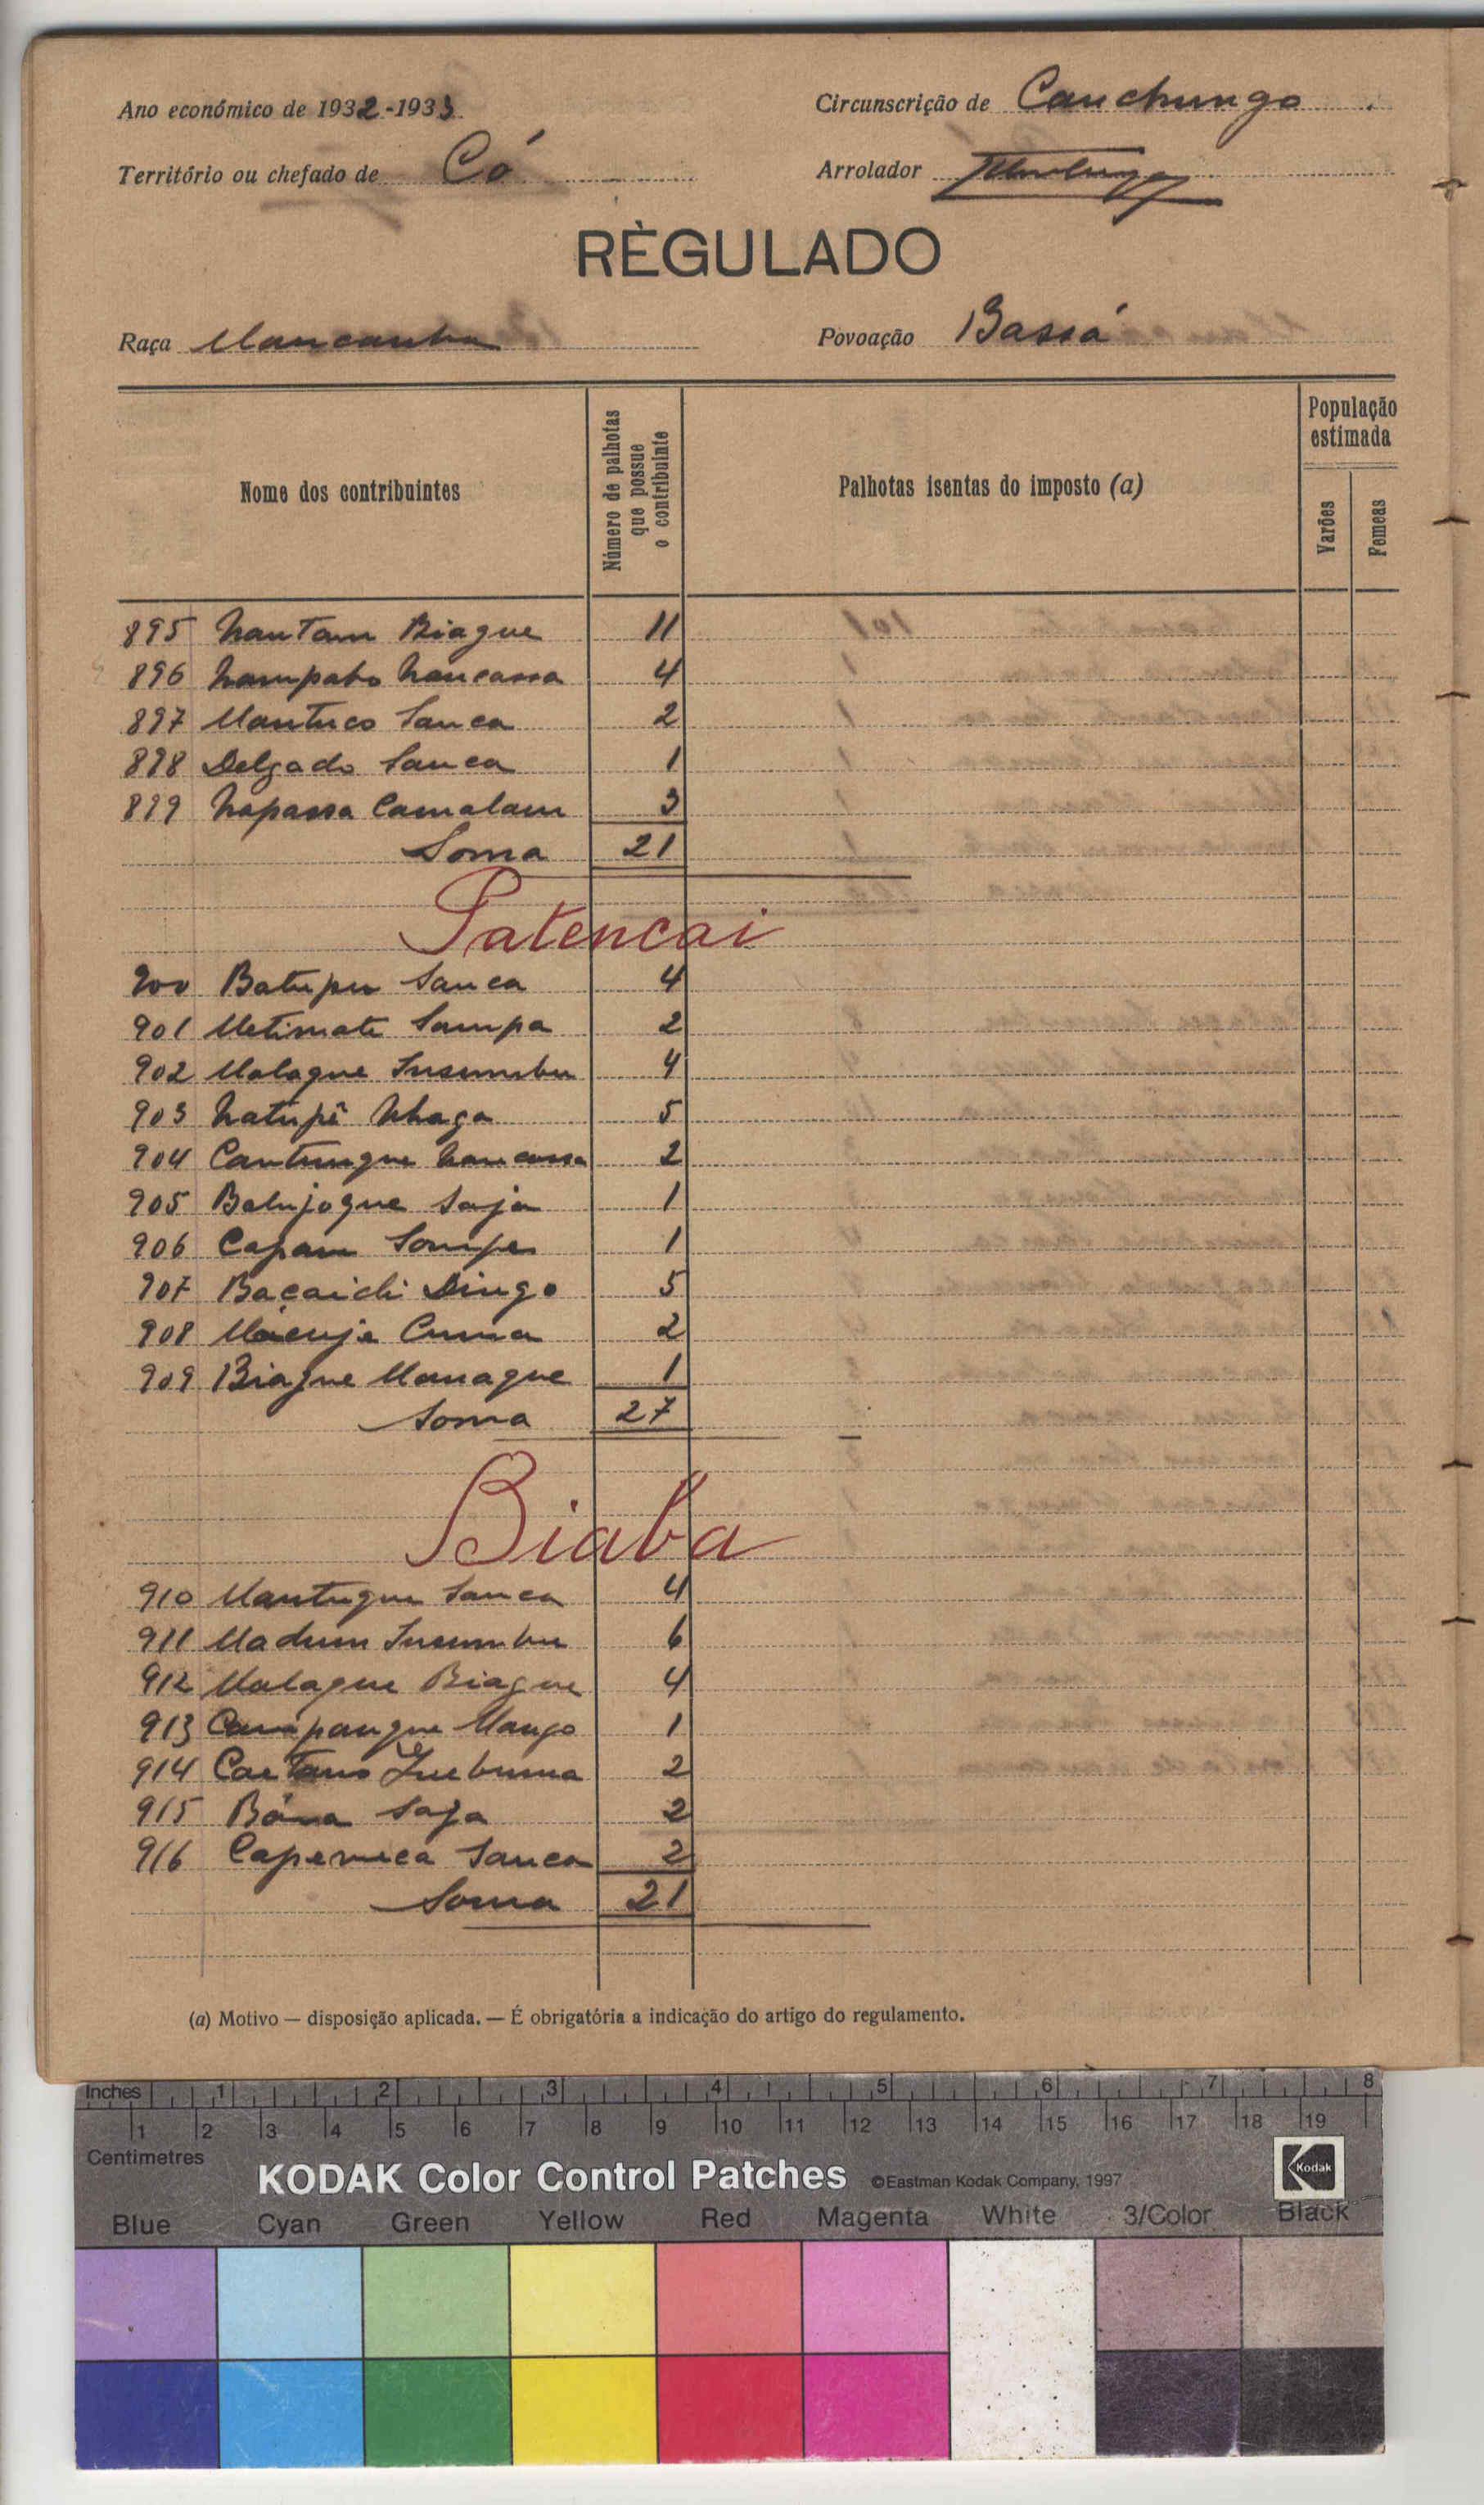 Ano económico de 1932-1933
Circunscrição de Canchungo
Território ou chefado de Có
Arrolador
RÈGULADO
Raça Mancanha
Povoação Bassá
Nome dos contribuintes
Número de palhotas que possue o contribuinte
Palhotas isentas do imposto (a)
População estimada
Varões
Femeas
895 Nantam Biague 11
896 Nampabo Nancassa 4
897 Mantuco Sanca 2
898 Delgado Sanca 1
899 Napassa Camalam 3
Soma 21
Patencai
900 Batupu Sanca 4
901 Metimate Sampa 2
902 Malague Insumbu 4
903 Natupê Nhaga 5
904 Cantungue Nancassa 2
905 Batujogue Saja 1
906 Capam 1
907 Bacaidi Dingo 5
908 Macuja Cuma 2
909 Biague Manague 1
Soma 27
Biaba
910 Mantugue Sanca 4
911 Madum Insumbu 6
912 Malague Biague 4
913 Campangue Mango 1
914 Caetano 2
915 Bána Saja 2
916 Sanca 2
Soma 21
(a) Motivo — disposição aplicada. — É obrigatória a indicação do artigo do regulamento.
Inches 1 2 3 4 5 6 7 8
1 2 3 4 5 6 7 8 9 10 11 12 13 14 15 16 17 18 19
Centimetres
KODAK Color Control Patches ©Eastman Kodak Company, 1997 Kodak
Blue Cyan Green Yellow Red Magenta White 3/Color Black